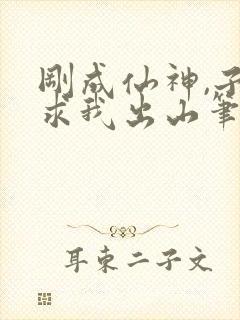 剛成仙神,子
求我出山筆
耳東二子文